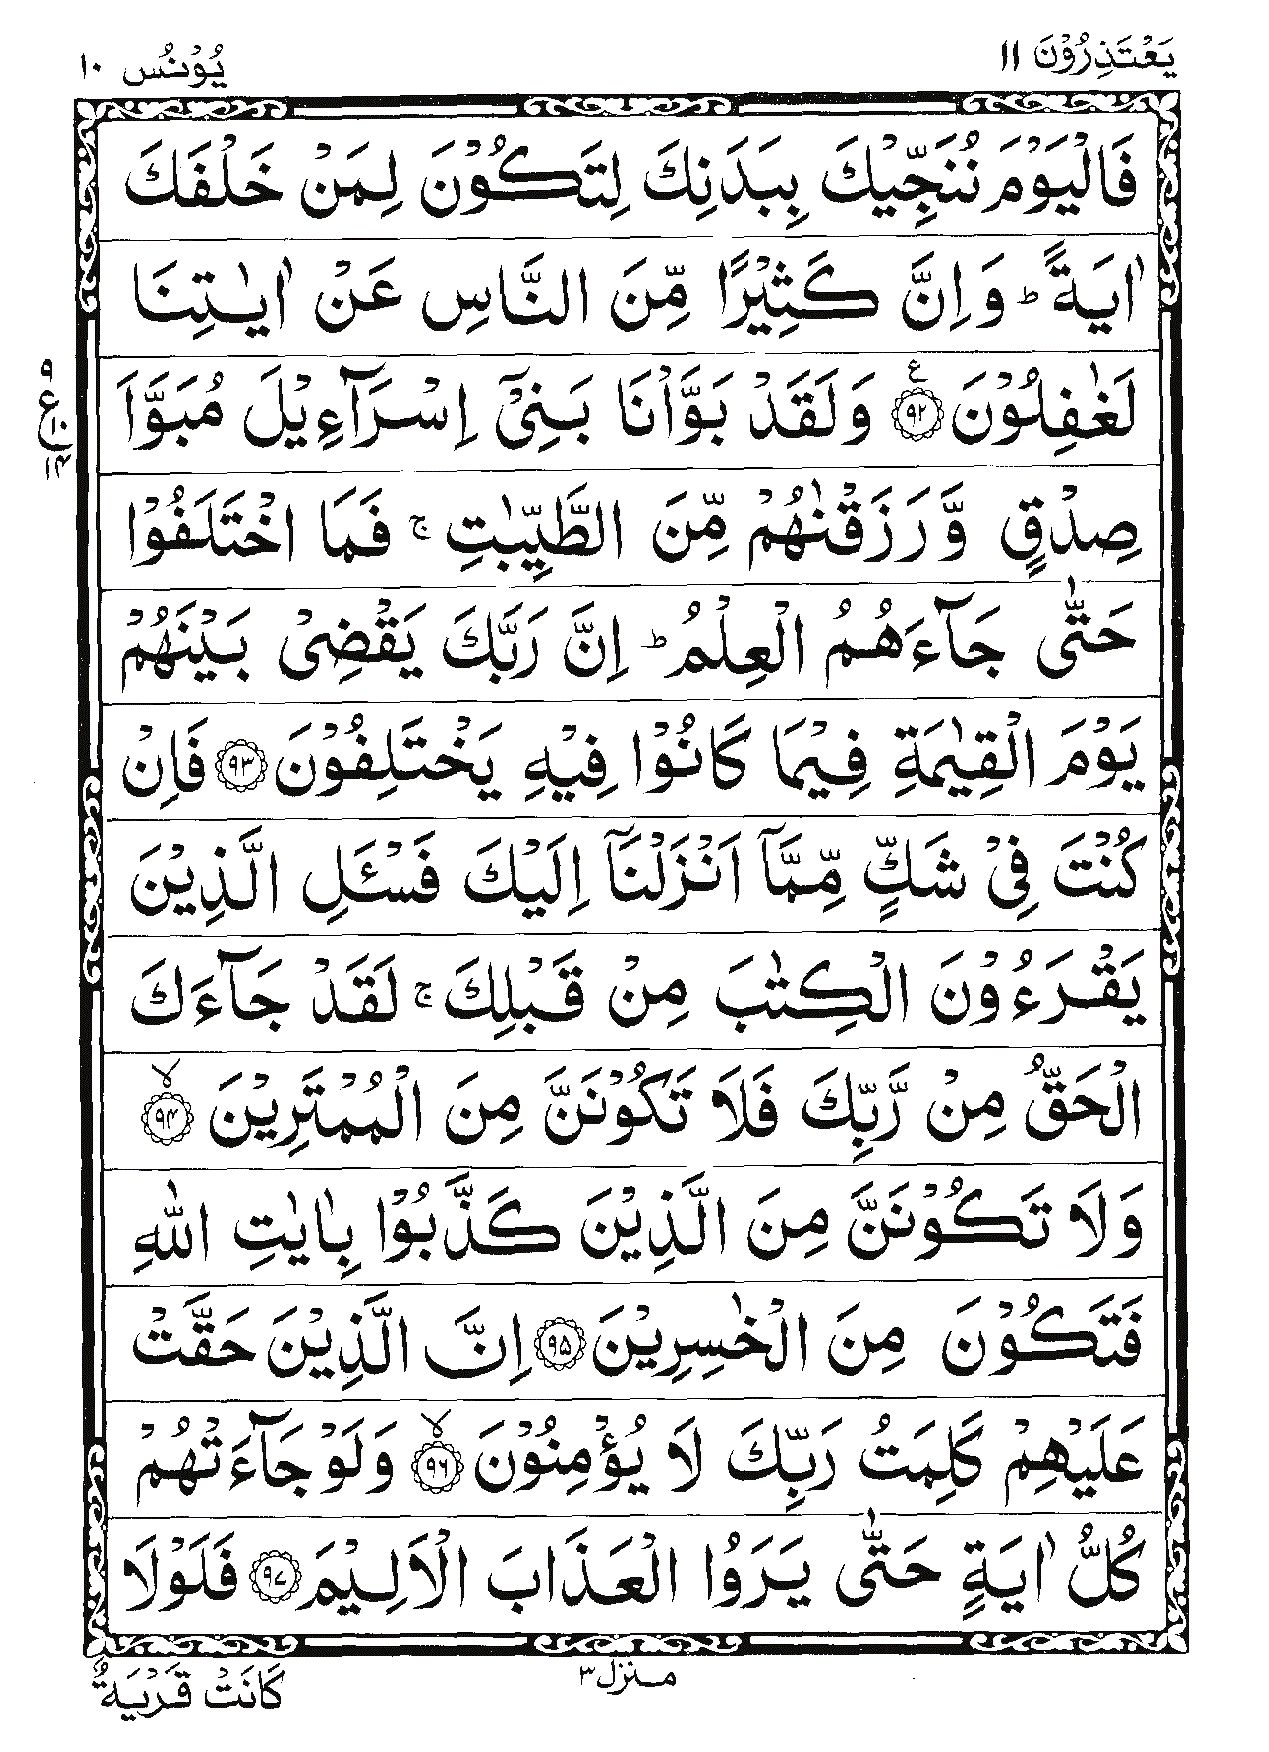 يَعْتَذِرُوْنَ ۱۱
يُوْنُس ۱۰
فَالْيَوْمَ نُنَجِّيْكَ بِبَدَنِكَ لِتَكُوْنَ لِمَنْ خَلْفَكَ
اٰيَةً ؕ وَاِنَّ كَثِيْرًا مِّنَ النَّاسِ عَنْ اٰيٰتِنَا
لَغٰفِلُوْنَ ﴿۹۲﴾ ع وَلَقَدْ بَوَّاْنَا بَنِىْۤ اِسْرَآءِيْلَ مُبَوَّاَ
۹
ع
۱۰
۱۴
صِدْقٍ وَّرَزَقْنٰهُمْ مِّنَ الطَّيِّبٰتِ ۚ فَمَا اخْتَلَفُوْا
حَتّٰى جَآءَهُمُ الْعِلْمُ ؕ اِنَّ رَبَّكَ يَقْضِىْ بَيْنَهُمْ
يَوْمَ الْقِيٰمَةِ فِيْمَا كَانُوْا فِيْهِ يَخْتَلِفُوْنَ ﴿۹۳﴾ فَاِنْ
كُنْتَ فِىْ شَكٍّ مِّمَّاۤ اَنْزَلْنَاۤ اِلَيْكَ فَسْـَٔلِ الَّذِيْنَ
يَقْرَءُوْنَ الْكِتٰبَ مِنْ قَبْلِكَ ۚ لَقَدْ جَآءَكَ
الْحَقُّ مِنْ رَّبِّكَ فَلَا تَكُوْنَنَّ مِنَ الْمُمْتَرِيْنَ ﴿۹۴﴾ ۙ
وَلَا تَكُوْنَنَّ مِنَ الَّذِيْنَ كَذَّبُوْا بِاٰيٰتِ اللّٰهِ
فَتَكُوْنَ مِنَ الْخٰسِرِيْنَ ﴿۹۵﴾ اِنَّ الَّذِيْنَ حَقَّتْ
عَلَيْهِمْ كَلِمَتُ رَبِّكَ لَا يُؤْمِنُوْنَ ﴿۹۶﴾ ۙ وَلَوْ جَآءَتْهُمْ
كُلُّ اٰيَةٍ حَتّٰى يَرَوُا الْعَذَابَ الْاَلِيْمَ ﴿۹۷﴾ فَلَوْلَا
منزل ۳
كَانَتْ قَرْيَةٌ